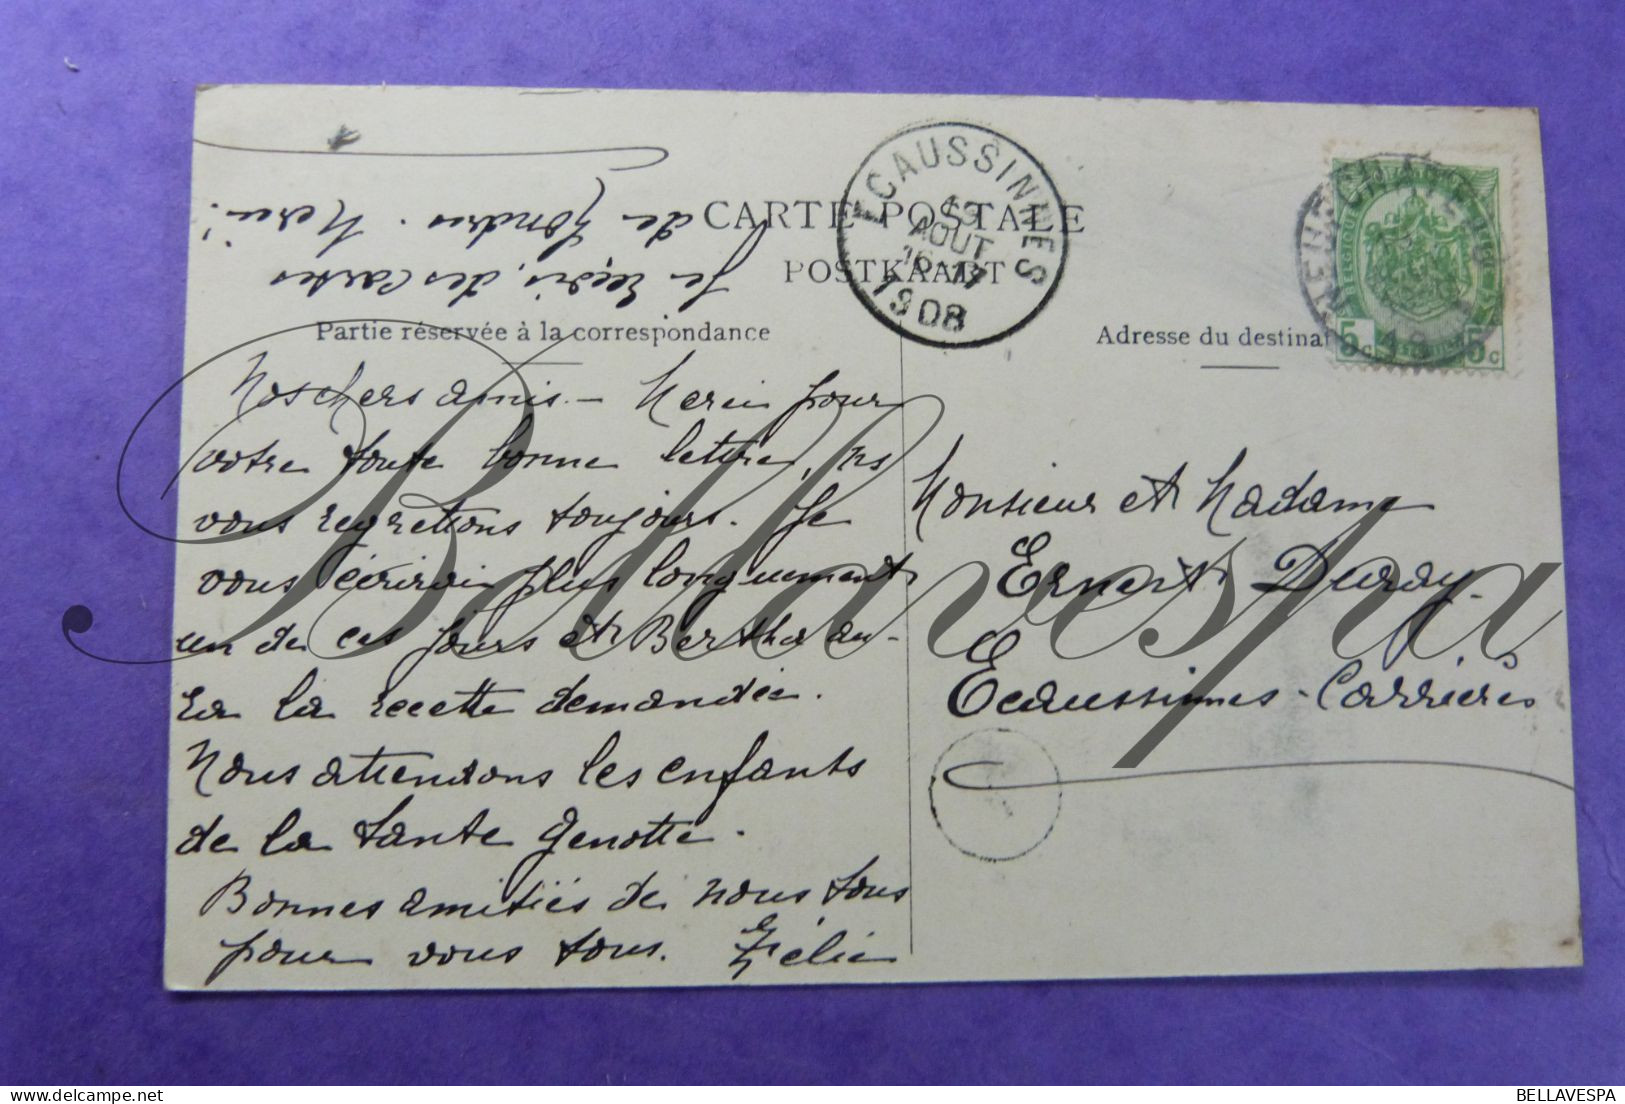 CARTE POSTALE
POSTKAART
Partie réservée à la correspondance
Adresse du destinat
ECAUSSINNES
13
AOUT
16-17
1908
NEUFCHATEAU
BELGIQUE
5c 5c
Je reçois, des cartes
de Londres. Merci!
Nos chers amis. - Merci pour
votre toute bonne lettre, ns
vous regrettons toujours. Je
vous écrirai plus longuement
un de ces jours et Bertha au-
ra la recette demandée.
Nous attendons les enfants
de la tante Genotte.
Bonnes amitiés de nous tous
pour vous tous. Zélie
Monsieur et Madame
Ernest Duray.
Ecaussinnes-Carrières
Bellavespa
BELLAVESPA